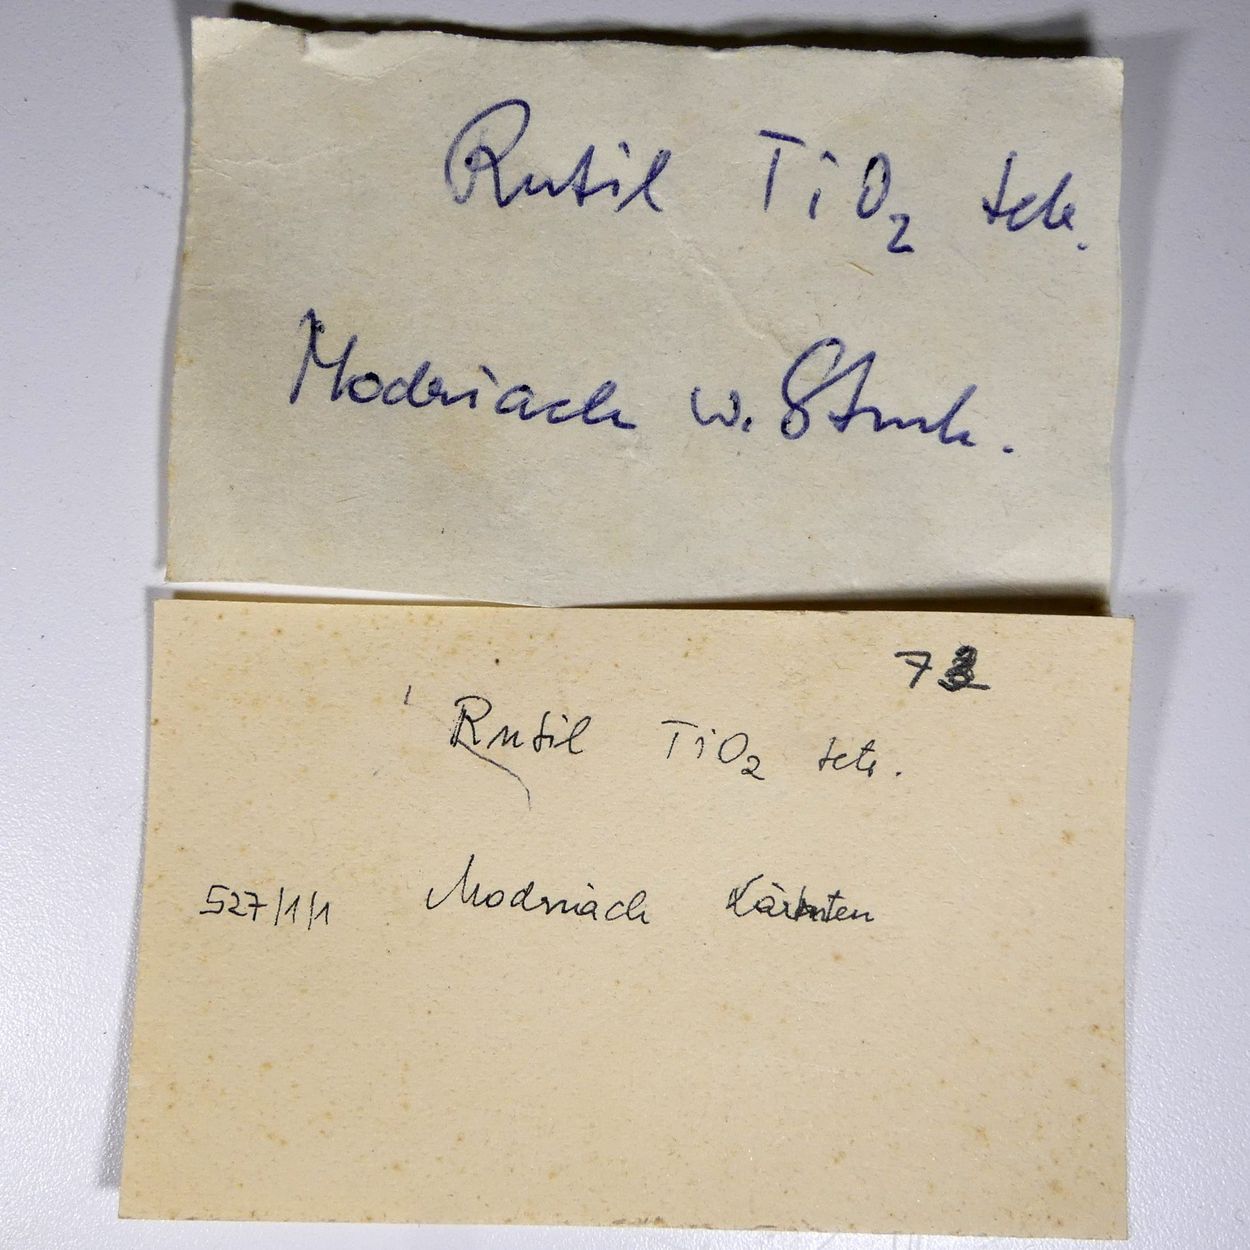 Rutil TiO₂ tetr.
Modriach w. Stmk.
7
Rutil TiO₂ tetr.
527/1/1 Modriach Kärnten